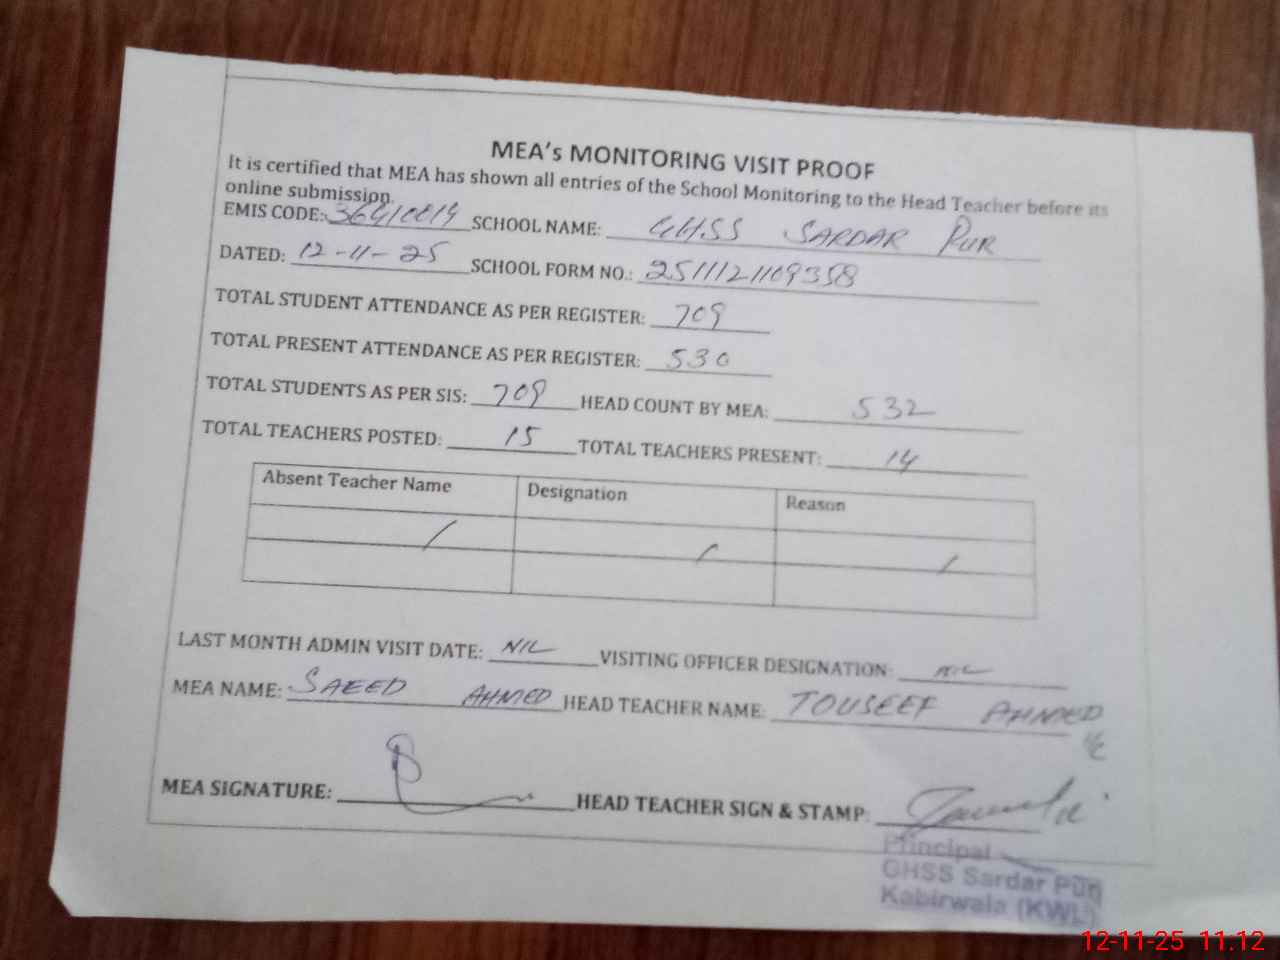 MEA's MONITORING VISIT PROOF
It is certified that MEA has shown all entries of the School Monitoring to the Head Teacher before its
online submission.
EMIS CODE: 36410014 SCHOOL NAME: GHSS SARDAR PUR
DATED: 12-11-25 SCHOOL FORM NO.: 2511121109358
TOTAL STUDENT ATTENDANCE AS PER REGISTER: 709
TOTAL PRESENT ATTENDANCE AS PER REGISTER: 530
TOTAL STUDENTS AS PER SIS: 709 HEAD COUNT BY MEA: 532
TOTAL TEACHERS POSTED: 15 TOTAL TEACHERS PRESENT: 14
Absent Teacher Name Designation Reason
/ / /
LAST MONTH ADMIN VISIT DATE: NIL VISITING OFFICER DESIGNATION: NIL
MEA NAME: SAEED AHMED HEAD TEACHER NAME: TOUSEEF AHMED
I/C
MEA SIGNATURE: HEAD TEACHER SIGN & STAMP:
Principal
GHSS Sardar Pur
Kabirwala (KWL)
12-11-25 11.12